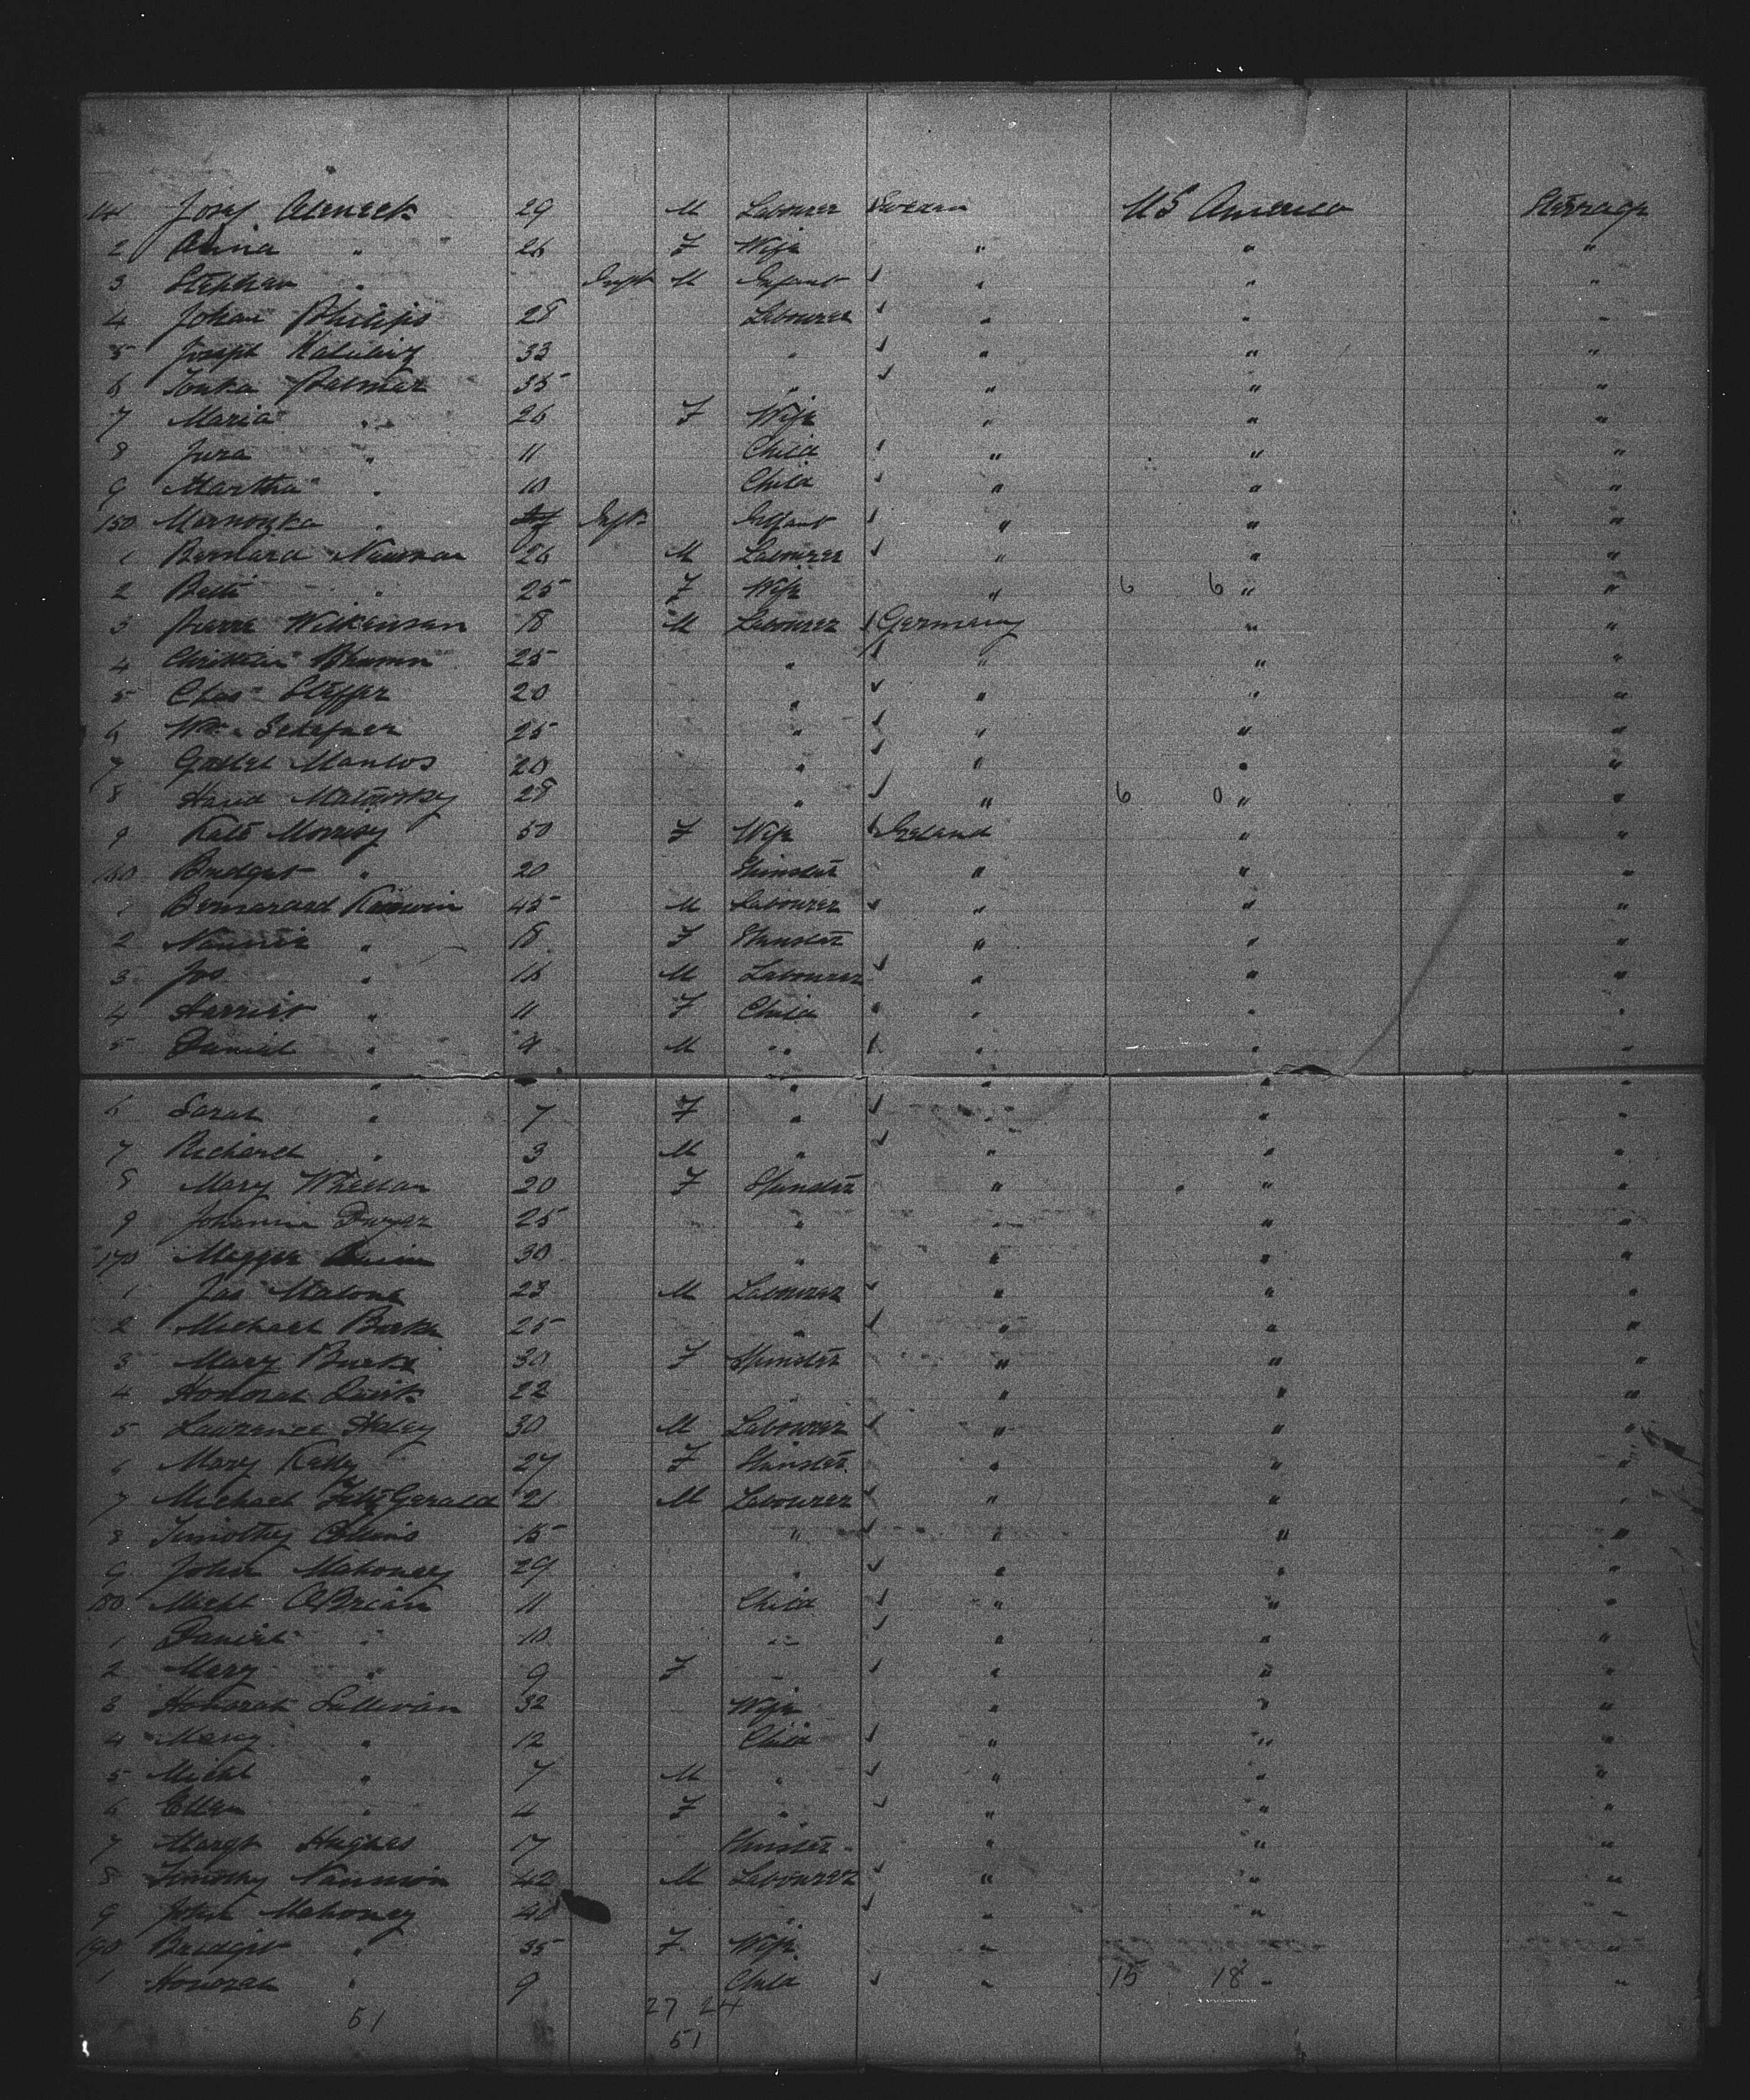 141 Josef 29 M Labourer Sweden U S America Steerage
2 Anna " 26 F Wife " " "
3 Stephan " Inft M Infant " " "
4 Johan Philips 28 Labourer " " "
5 Joseph 33 " " " "
6 35 " " " "
7 Maria " 26 F Wife " " "
8 Jura " 11 Child " " "
9 Martha " 10 Child " " "
150 " Inft Infant " " "
1 Bernard Neuman 26 M Labourer " " "
2 Betti " 25 F Wife " 6 6 " "
3 Pierre Wilkensen 18 M Labourer Germany " "
4 Christian 25 " " " "
5 Chas Steffer 20 " " " "
6 Wm 25 " " " "
7 20 " " " "
8 28 " " 6 0 " "
9 Kate Morrisy 50 F Wife Ireland " "
160 Bridget " 20 Spinster " " "
1 45 M Labourer " " "
2 Nannie " 18 F Spinster " " "
3 Jos " 16 M Labourer " " "
4 Harriet " 11 F Child " " "
5 Daniel " 9 M " " " "
6 Sarah " 7 F " " " "
7 Richard " 3 M " " " "
8 Mary Whelan 20 F Spinster " " "
9 Johanna Dwyer 25 " " " "
170 30 " " " "
1 Jas Malone 23 M Labourer " " "
2 Michael Burke 25 " " " "
3 Mary Burke 30 F Spinster " " "
4 Honorah Quirk 22 " " " "
5 Lawrence 30 M Labourer " " "
6 Mary Kelly 27 F Spinster " " "
7 Michael FitzGerald 21 M Labourer " " "
8 Timothy Collins 15 " " " "
9 John Mahoney 29 " " " "
180 Michl O'Brian 11 Child " " "
1 Daniel " 10 " " " "
2 Mary " 9 F " " " "
3 Honorah Sullivan 32 Wife " " "
4 Mary " 12 Child " " "
5 Michl " 7 M " " " "
6 Ellen " 4 F " " " "
7 Margt Hughes 17 Spinster " " "
8 Timothy 42 M Labourer " " "
9 John Mahoney 40 " " " "
190 Bridget " 35 F Wife " " "
1 Honorah " 9 Child " 15 18 " "
51 27 24
51